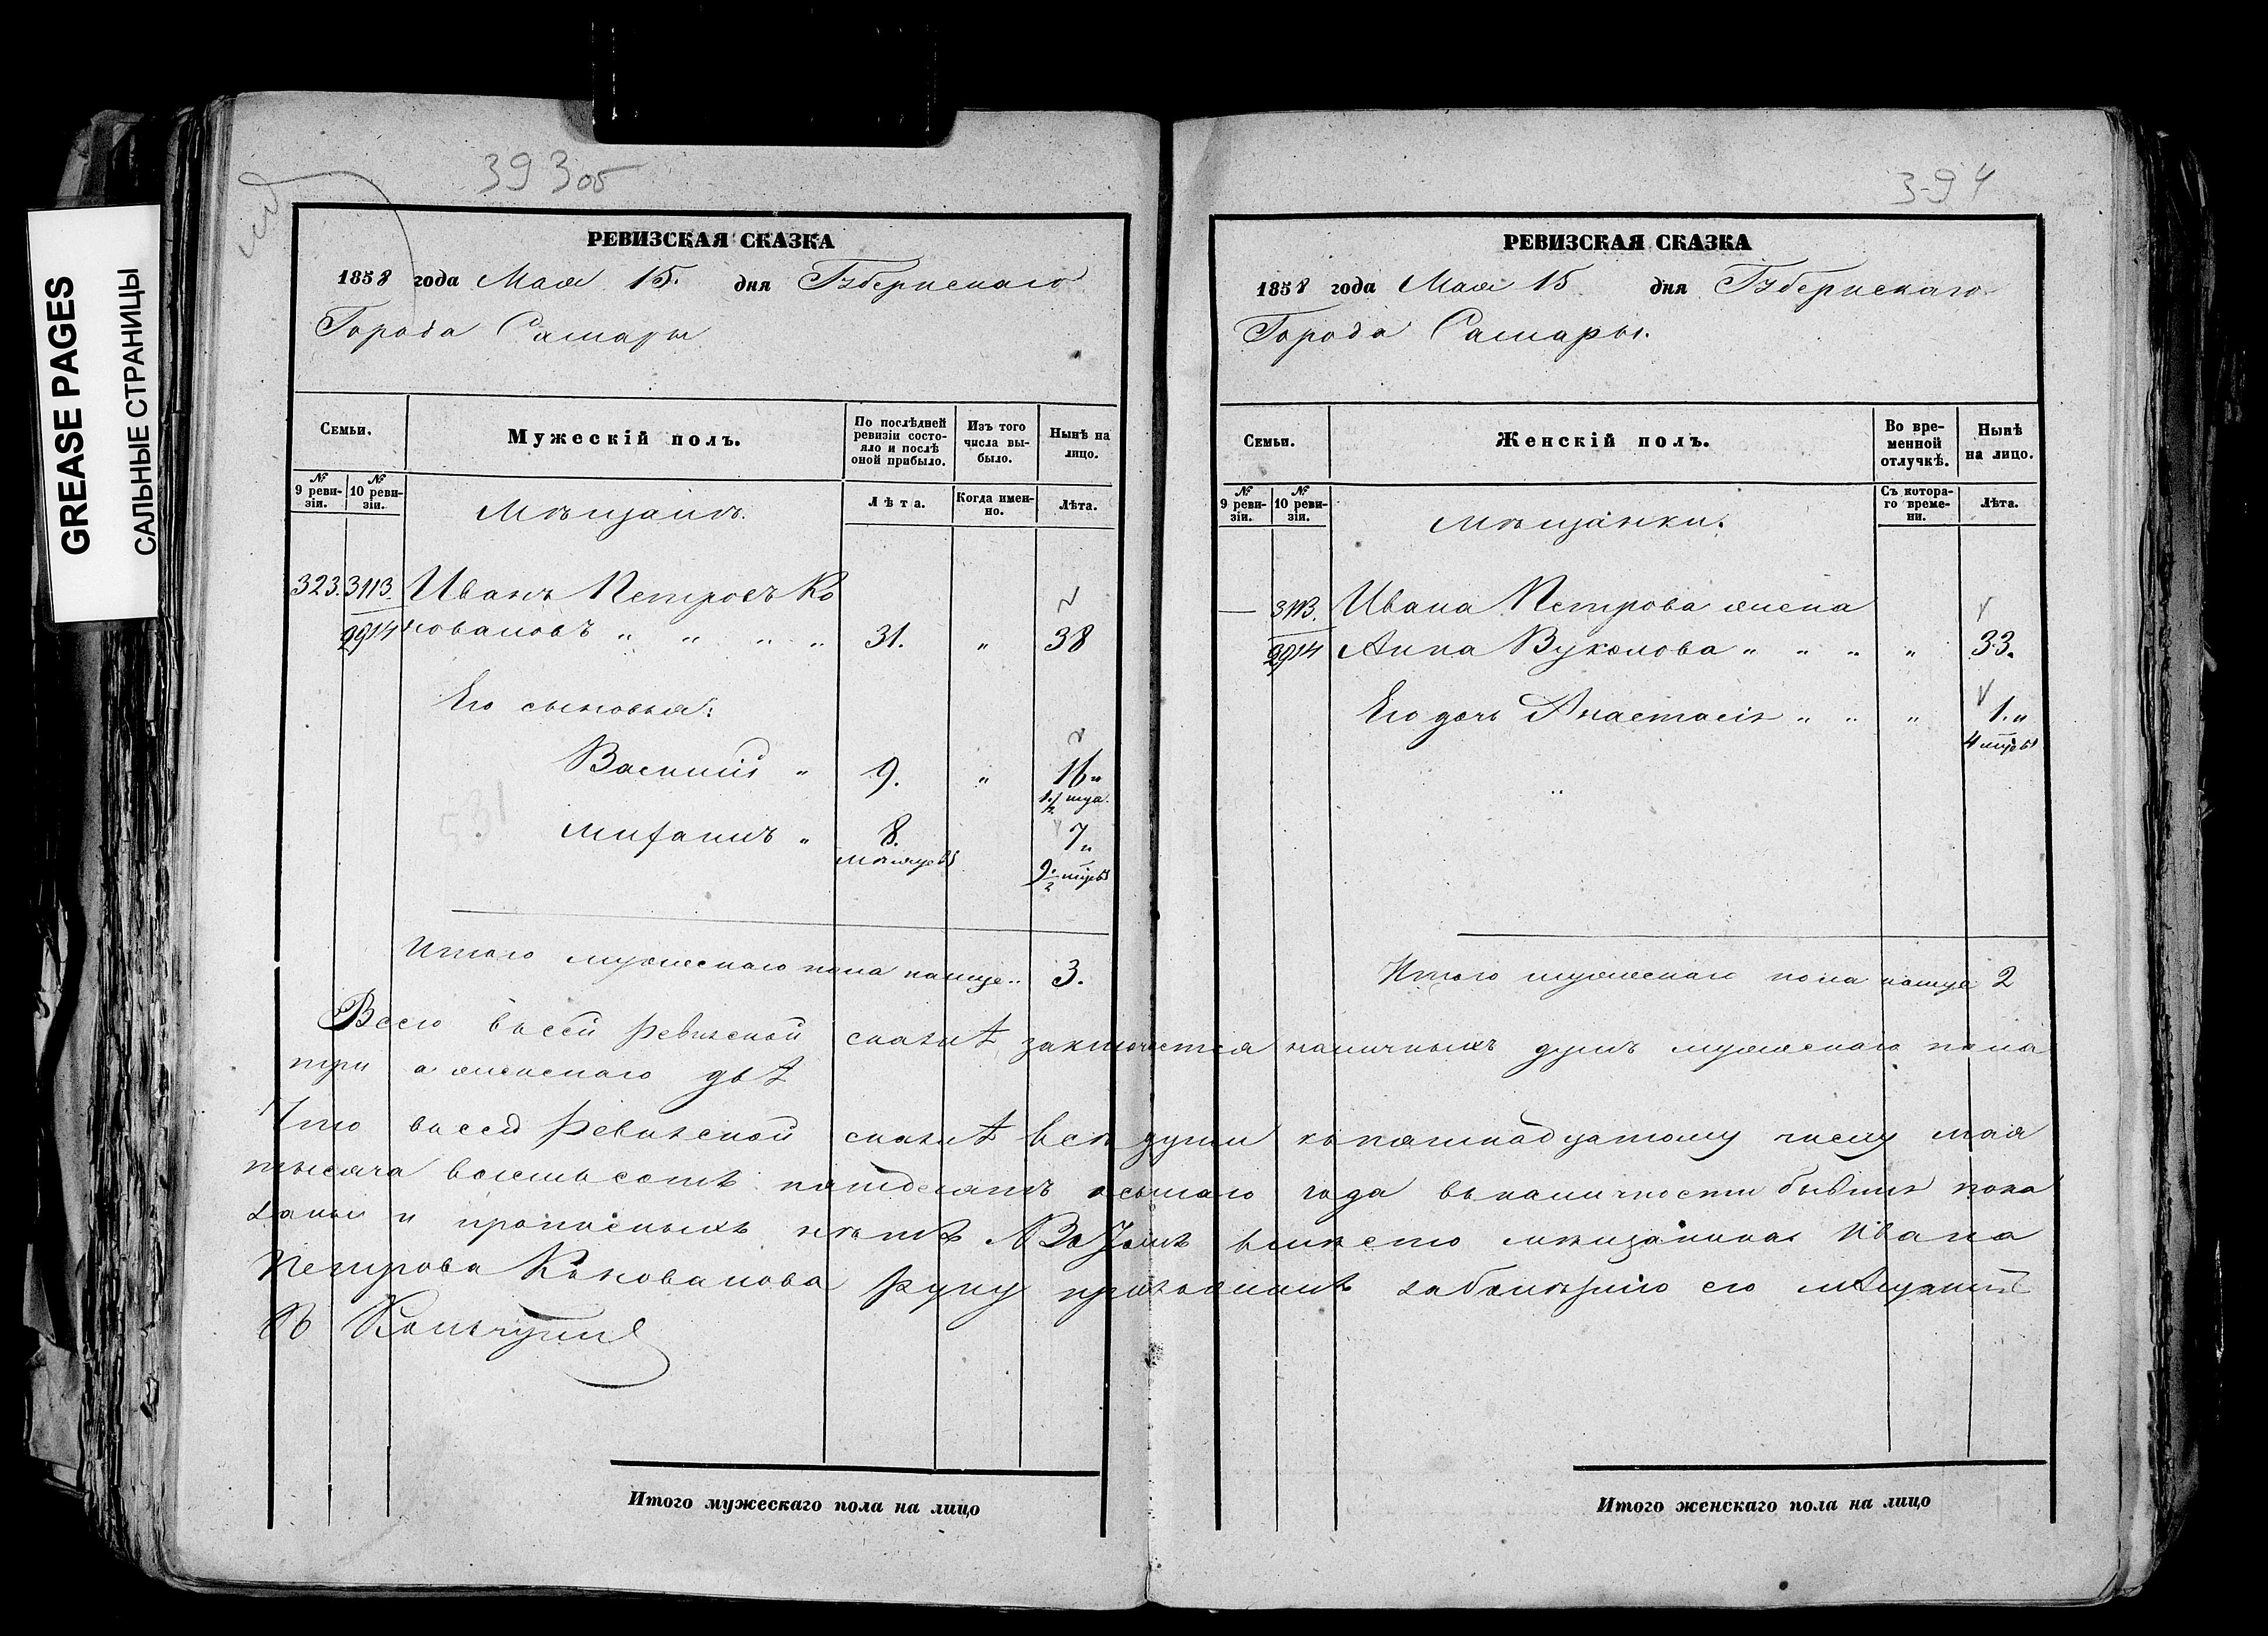 GREASE PAGES
САЛЬНЫЕ СТРАНИЦЫ
393об
РЕВИЗСКАЯ СКАЗКА
1858 года Мая 15. дня Губернскаго
Города Самары
Семьи.
Мужескій полъ.
По послѣдней ревизіи состояло и послѣ оной прибыло.
Изъ того числа выбыло.
Нынѣ на лицо.
№ 9 ревизіи.
№ 10 ревизіи.
Мѣщанъ.
Лѣта.
Когда именно.
Лѣта.
323. 3113. Иванъ Петровъ Ко
2914 новаловъ " " " " 31. " 38
Его сыновья:
Василий " 9. " 16 "
Мифанил " 8. 7 "
мѣсяцевъ
Итого мужескаго пола налице.. 3.
394
РЕВИЗСКАЯ СКАЗКА
1858 года Мая 15 дня Губернскаго
Города Самары.
Семьи.
Женскій полъ.
Во временной отлучкѣ.
Нынѣ на лицо.
№ 9 ревизіи.
№ 10 ревизіи.
Мѣщанки.
Съ котораго времени.
Лѣта.
— 3113. Ивана Петрова жена
2914 Анна Вуколова " " " " 33.
Его дочь Анастасія " " " 1. "
4 мцовъ
Итого мужескаго пола налице 2
Всего въсей ревизской сказкѣ заключается наличныхъ душъ мужескаго пола
три а женскаго двѣ
Что въсей Ревизской сказкѣ всѣ души къпятнадцатому числу мая
тысяча восемьсотъ пятдесятъ осьмаго года въналичности бывшія пока
заны и прописныхъ нѣтъ вмѣсто мѣщанина Ивана
Петрова Коновалова руку приложилъ
Итого мужескаго пола на лицо
Итого женскаго пола на лицо